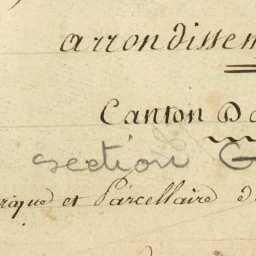 arrondissem
Canton Da
section G
rique et Parcellaire d